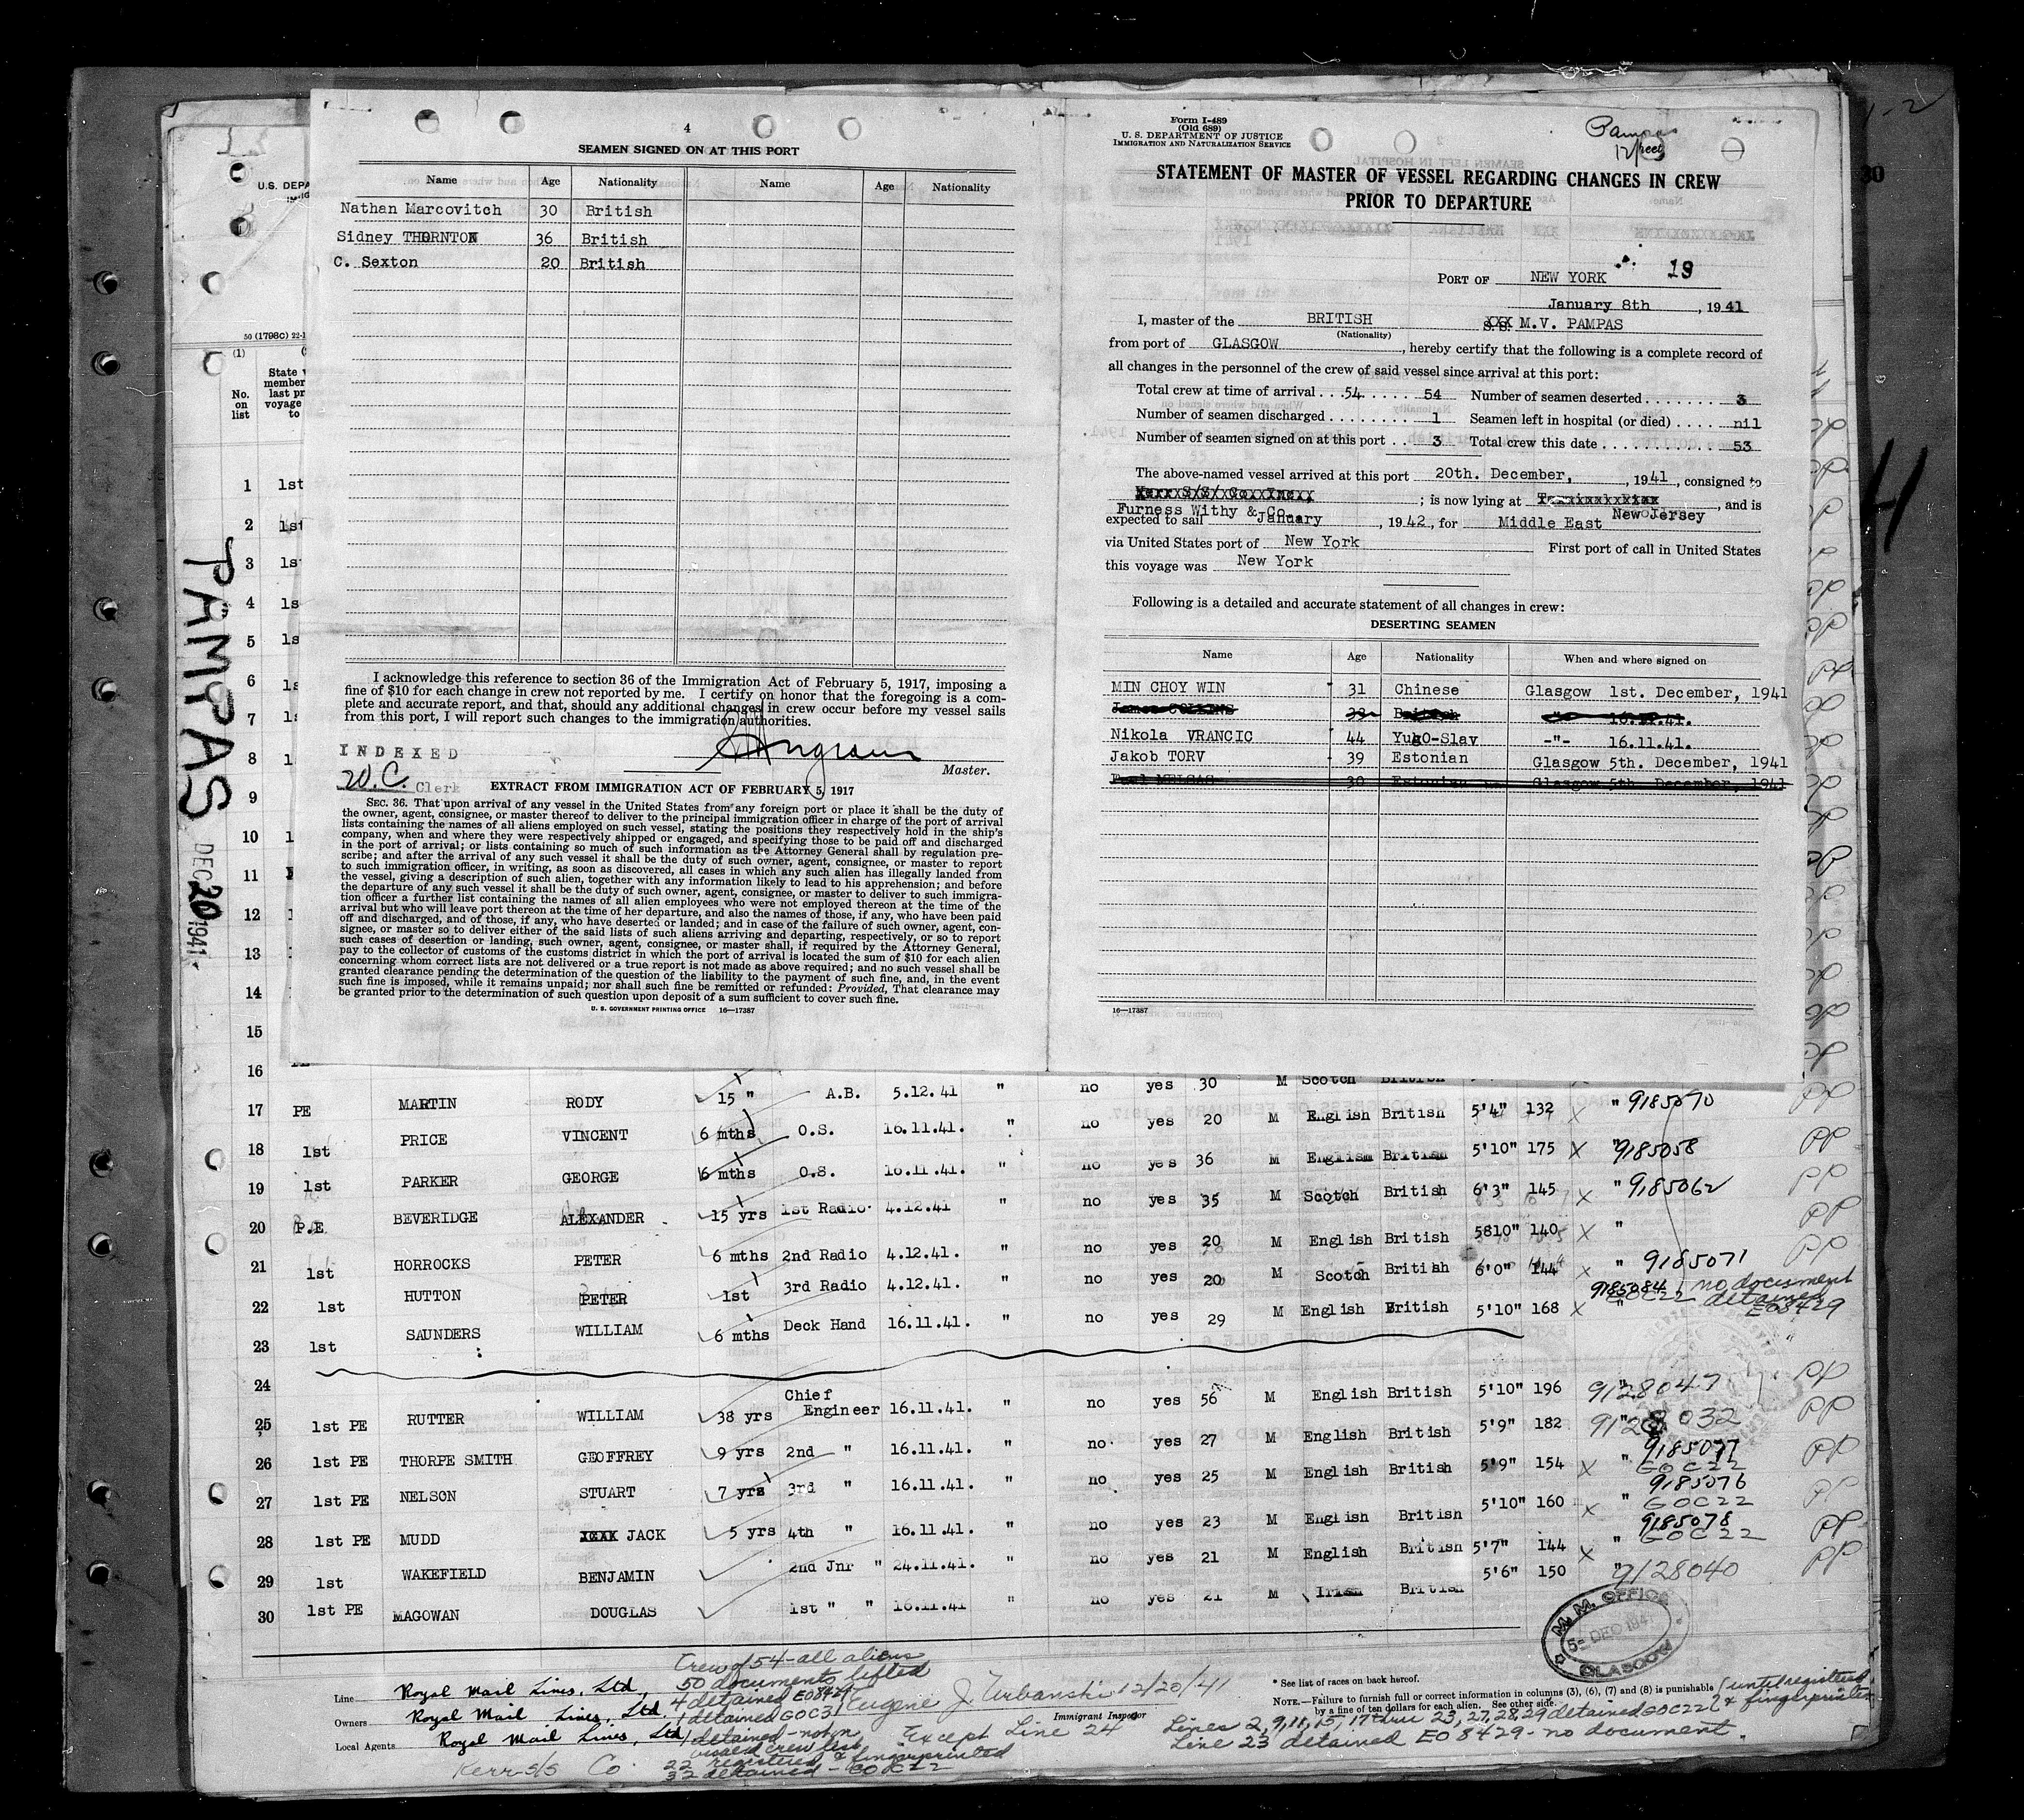 4
SEAMEN SIGNED ON AT THIS PORT
Name Age Nationality Name Age Nationality
Nathan Marcovitch 30 British
Sidney THORNTON 36 British
C. Sexton 20 British
I acknowledge this reference to section 36 of the Immigration Act of February 5, 1917, imposing a
fine of $10 for each change in crew not reported by me. I certify on honor that the foregoing is a com-
plete and accurate report, and that, should any additional changes in crew occur before my vessel sails
from this port, I will report such changes to the immigration authorities.
INDEXED
W.C. Clerk
Master.
EXTRACT FROM IMMIGRATION ACT OF FEBRUARY 5, 1917
SEC. 36. That upon arrival of any vessel in the United States from any foreign port or place it shall be the duty of
the owner, agent, consignee, or master thereof to deliver to the principal immigration officer in charge of the port of arrival
lists containing the names of all aliens employed on such vessel, stating the positions they respectively hold in the ship's
company, when and where they were respectively shipped or engaged, and specifying those to be paid off and discharged
in the port of arrival; or lists containing so much of such information as the Attorney General shall by regulation pre-
scribe; and after the arrival of any such vessel it shall be the duty of such owner, agent, consignee, or master to report
to such immigration officer, in writing, as soon as discovered, all cases in which any such alien has illegally landed from
the vessel, giving a description of such alien, together with any information likely to lead to his apprehension; and before
the departure of any such vessel it shall be the duty of such owner, agent, consignee, or master to deliver to such immigra-
tion officer a further list containing the names of all alien employees who were not employed thereon at the time of the
arrival but who will leave port thereon at the time of her departure, and also the names of those, if any, who have been paid
off and discharged, and of those, if any, who have deserted or landed; and in case of the failure of such owner, agent, con-
signee, or master so to deliver either of the said lists of such aliens arriving and departing, respectively, or so to report
such cases of desertion or landing, such owner, agent, consignee, or master shall, if required by the Attorney General,
pay to the collector of customs of the customs district in which the port of arrival is located the sum of $10 for each alien
concerning whom correct lists are not delivered or a true report is not made as above required; and no such vessel shall be
granted clearance pending the determination of the question of the liability to the payment of such fine, and, in the event
such fine is imposed, while it remains unpaid; nor shall such fine be remitted or refunded: Provided, That clearance may
be granted prior to the determination of such question upon deposit of a sum sufficient to cover such fine.
U. S. GOVERNMENT PRINTING OFFICE 16—17387
Form I-489
(Old 689)
U. S. DEPARTMENT OF JUSTICE
IMMIGRATION AND NATURALIZATION SERVICE
Pampas
STATEMENT OF MASTER OF VESSEL REGARDING CHANGES IN CREW
PRIOR TO DEPARTURE
PORT OF NEW YORK 19
January 8th, 1941
I, master of the BRITISH S.S. M.V. PAMPAS
(Nationality)
from port of GLASGOW, hereby certify that the following is a complete record of
all changes in the personnel of the crew of said vessel since arrival at this port:
Total crew at time of arrival . . 54 . . . . . 54 Number of seamen deserted . . . . . . . . 3
Number of seamen discharged . . . . . . . . 1 Seamen left in hospital (or died) . . . . nil
Number of seamen signed on at this port . . 3 Total crew this date . . . . . . . . . . . 53
The above-named vessel arrived at this port 20th. December, , 1941, consigned to
Kerr S/S/ Co Inc ; is now lying at , and is
Furness Withy & Co. New Jersey
expected to sail January , 1942, for Middle East
via United States port of New York First port of call in United States
this voyage was New York
Following is a detailed and accurate statement of all changes in crew:
DESERTING SEAMEN
Name Age Nationality When and where signed on
MIN CHOY WIN 31 Chinese Glasgow 1st. December, 1941
James COLLINS British -"- 16.11.41.
Nikola VRANCIC 44 Yugo-Slav -"- 16.11.41.
Jakob TORV 39 Estonian Glasgow 5th. December, 1941
Paul 30 Estonian Glasgow 5th. December, 1941
16—17387
U.S. DEPA
50 (1798C) 22-1
(1)
No. on list
State
member
last pr
voyage
to
PAMPAS DEC 20 1941
H
30
1 1st
2 1st
3 1s
4 1s
5 1s
6 1s
7 1s
8 1
9
10 1
11
12
13
14
15
16
MARTIN RODY 15 " A.B. 5.12.41 " no yes 30 M Scotch British
17 PE PRICE VINCENT 6 mths O.S. 16.11.41. " no yes 20 M English British 5'4" 132 x " 9185070 PP
18 1st PARKER GEORGE 6 mths O.S. 16.11.41. " no yes 36 M English British 5'10" 175 x " 9185058 PP
19 1st BEVERIDGE ALEXANDER 15 yrs 1st Radio 4.12.41 " no yes 35 M Scotch British 6'3" 145 x " 9185062 PP
20 P.E. HORROCKS PETER 6 mths 2nd Radio 4.12.41. " no yes 20 M English British 5810" 140 x " PP
21 1st HUTTON PETER 1st 3rd Radio 4.12.41. " no yes 20 M Scotch British 6'0" 144 x " 9185071 PP
22 1st SAUNDERS WILLIAM 6 mths Deck Hand 16.11.41. " no yes 29 M English British 5'10" 168 x 9185084 GOC22 no document detained EO8429
23 1st
24
Chief
25 1st PE RUTTER WILLIAM 38 yrs Engineer 16.11.41. " no yes 56 M English British 5'10" 196 9128047 PP
26 1st PE THORPE SMITH GEOFFREY 9 yrs 2nd " 16.11.41. " no yes 27 M English British 5'9" 182 9128032 PP
27 1st PE NELSON STUART 7 yrs 3rd " 16.11.41. " no yes 25 M English British 5'9" 154 x " 9185077 GOC22 PP
28 1st PE MUDD JACK 5 yrs 4th " 16.11.41. " no yes 23 M English British 5'10" 160 x " 9185076 GOC22 PP
29 1st WAKEFIELD BENJAMIN 2nd Jnr " 24.11.41. " no yes 21 M English British 5'7" 144 x " 9185078 GOC22 PP
30 1st PE MAGOWAN DOUGLAS 1st " " 16.11.41 " no yes 21 M Irish British 5'6" 150 " 9128040 PP
M. M. OFFICE
5 - DEC 194
GLASGOW
Crew of 54 - all aliens
50 documents lifted
4 detained EO8429
1 detained GOC31
1 detained - not on
visaed crew list
22 registered & fingerprinted
32 detained - GOC22
Line Royal Mail Lines, Ltd
Owners Royal Mail Lines, Ltd.
Local Agents Royal Mail Lines, Ltd
Kerr S/S Co.
Eugene J. Urbanski 12/20/41
Immigrant Inspector
Except Line 24
* See list of races on back hereof.
NOTE.—Failure to furnish full or correct information in columns (3), (6), (7) and (8) is punishable
by a fine of ten dollars for each alien. See other side.
Lines 2, 9, 11, 15, 17 thru 23, 27, 28, 29 detained GOC22 (until registered & fingerprinted
Line 23 detained EO8429 - no document.